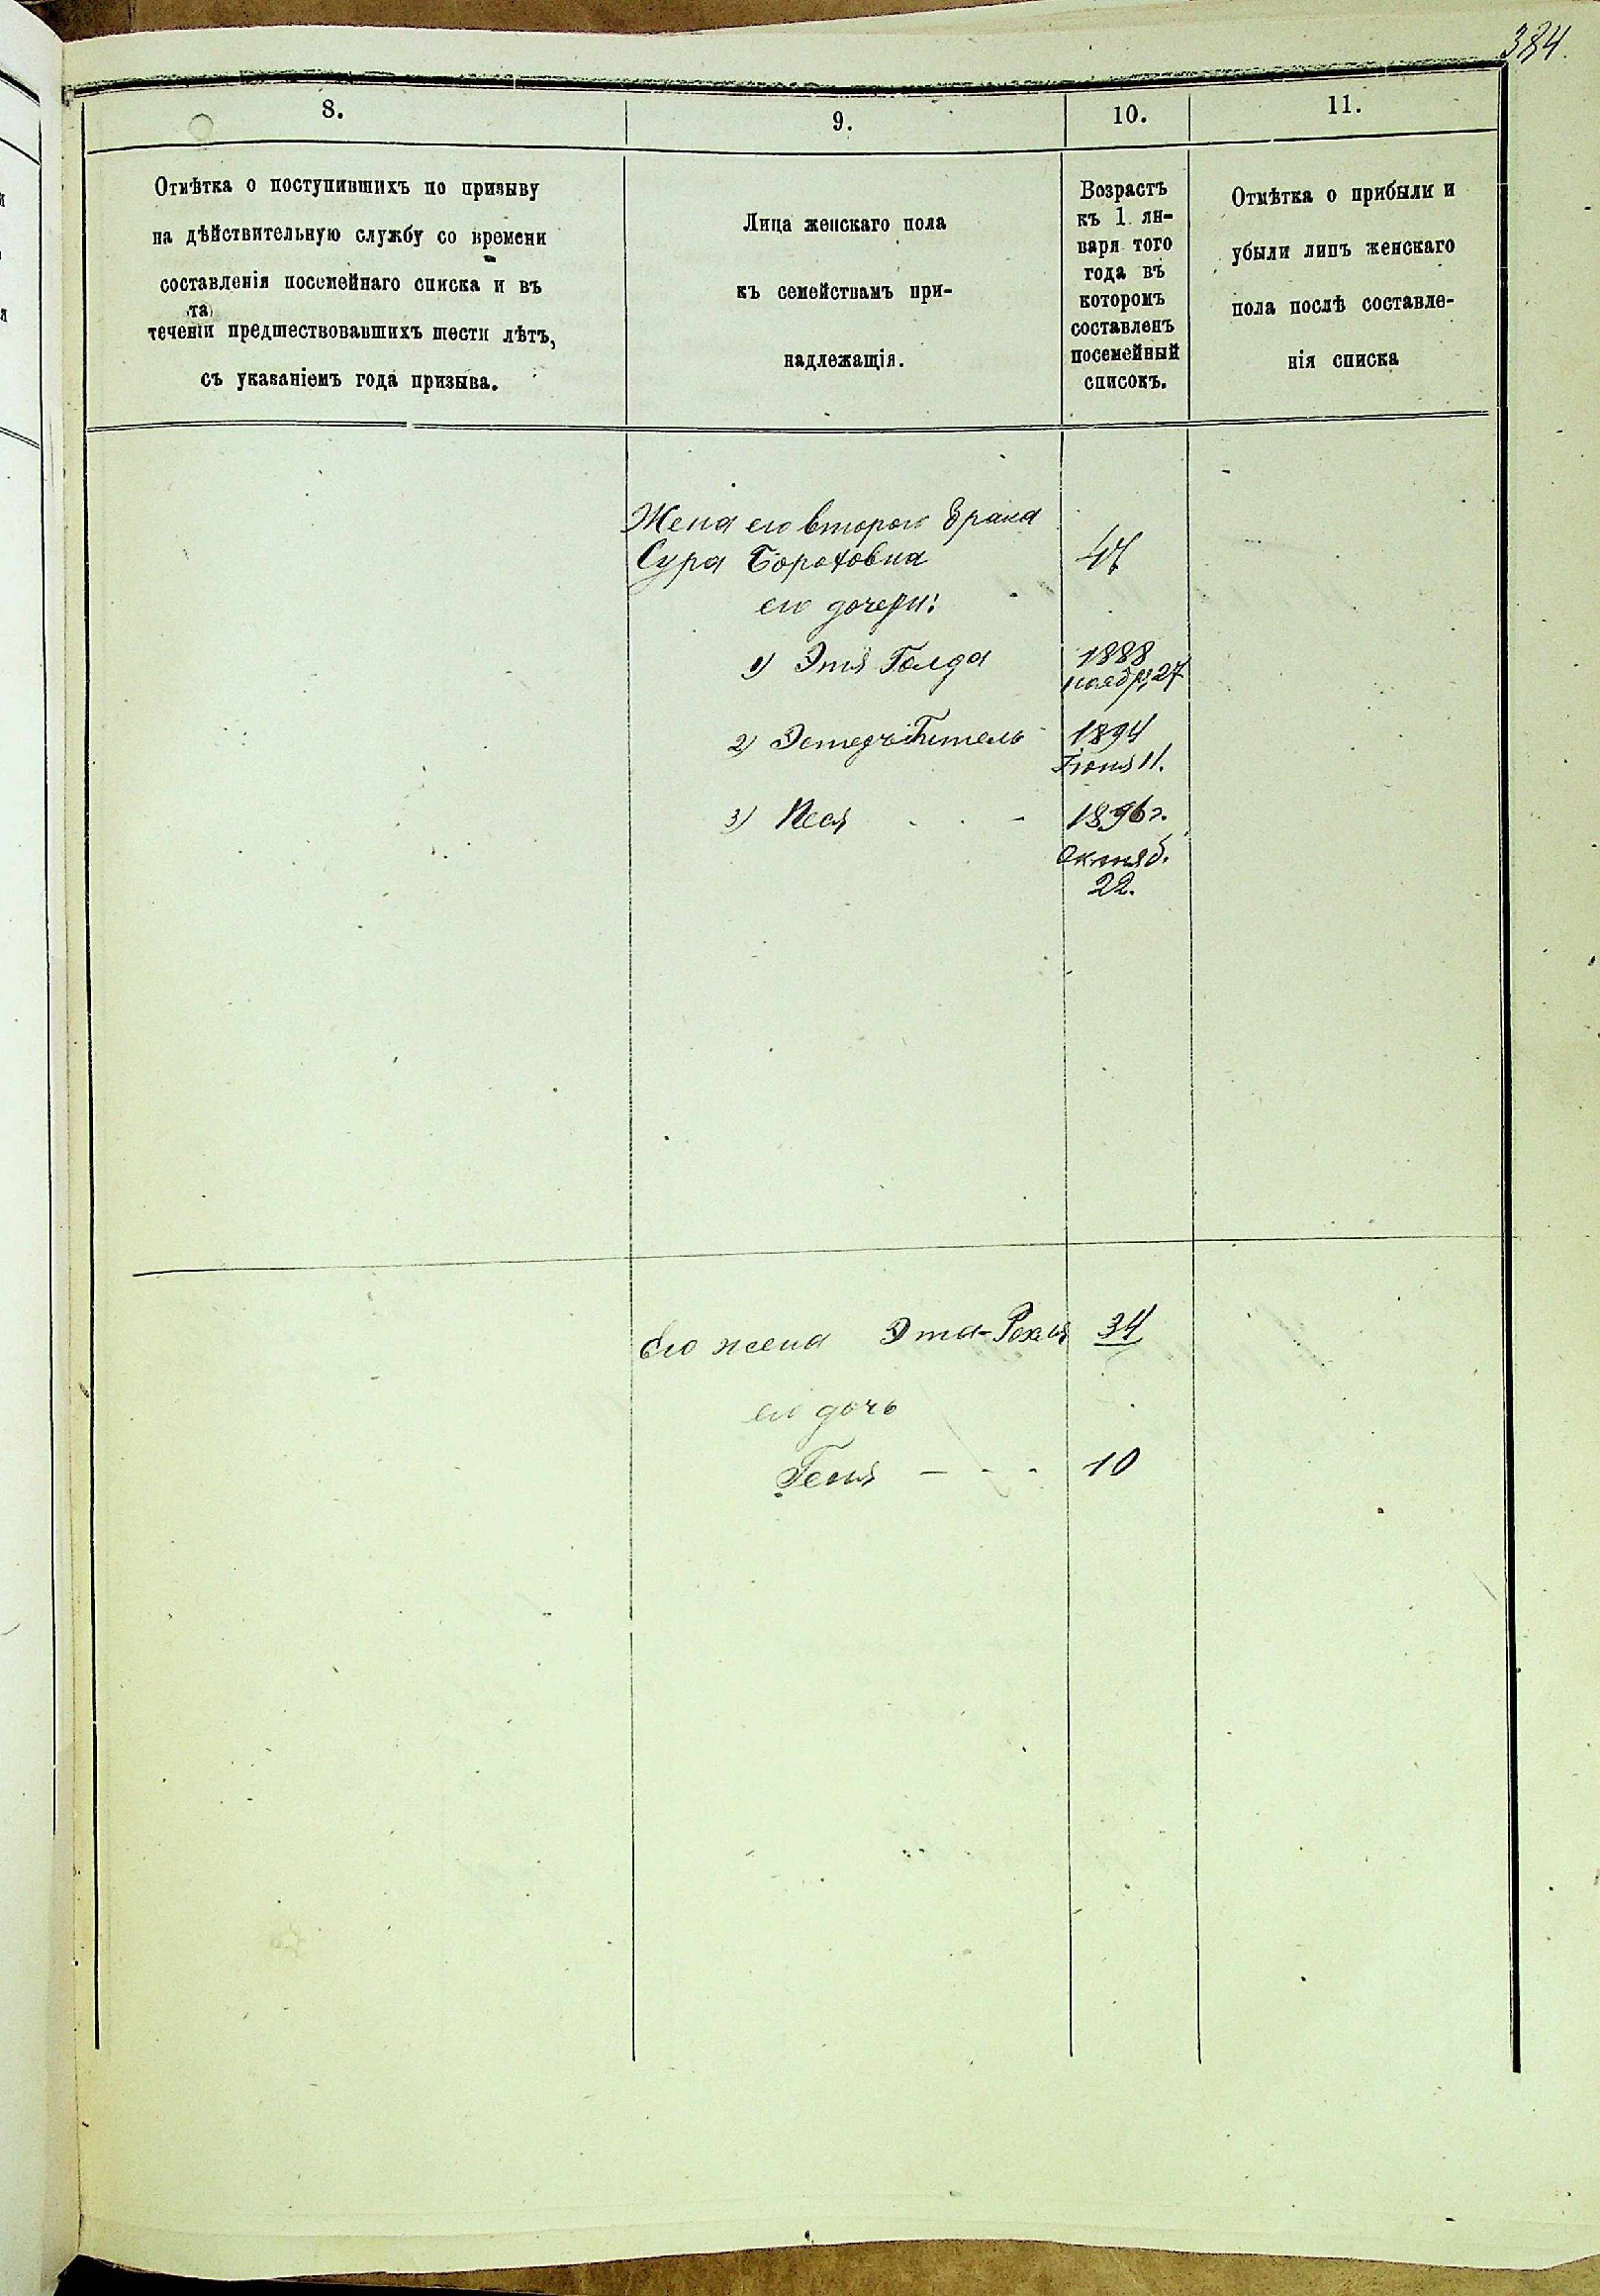 384.
8.
9.
10.
11.
Отмѣтка о поступившихъ по призыву
на дѣйствительную службу со времени
составленія посемейнаго списка и въ
та
теченіи предшествовавшихъ шести лѣтъ,
съ указаніемъ года призыва.
Лица женскаго пола
къ семействамъ при-
надлежащія.
Возрастъ
къ 1 ян-
варя того
года въ
которомъ
составленъ
посемейный
списокъ.
Отмѣтка о прибыли и
убыли лицъ женскаго
пола послѣ составле-
нія списка
Жена его второго брака
Сура Бороховна 47
его дочери:
1) Этя Голда 1888
ноябр. 27
2) Эстеръ Гитель 1894
Іюня 11.
3) Песя 1896 г.
Октяб.
22.
Его жена Эта-Рохля 34
его дочь
Геня - - - 10